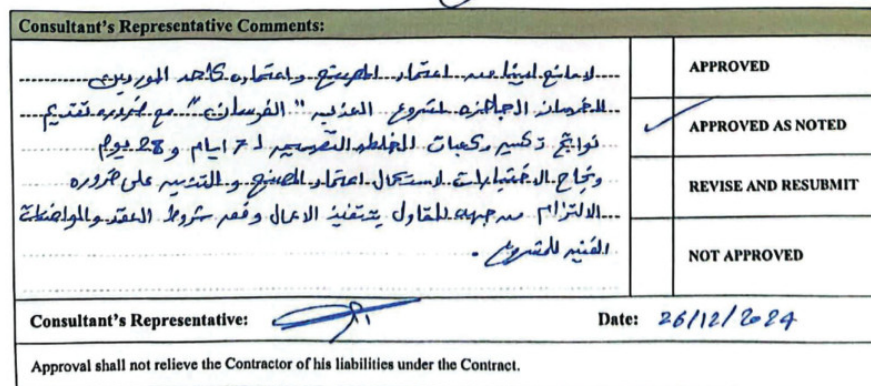 Consultant's Representative Comments:
لا مانع لدينا من اعتماد المصنع واعتماده كأحد الموردين
للخرسانة الجاهزه لمشروع العذيب "الفرسان" مع ضروره تقديم
نواتج تكسير مكعبات الخلطه التصميميه لـ 7 ايام و 28 يوم
ونجاح الاختبارات لاستكمال اعتماد المصنع و التنبيه على ضروره
الالتزام من جهه المقاول بتنفيذ الاعمال وفق شروط العقد والمواصفات
الفنيه للمشروع .
APPROVED
✓ APPROVED AS NOTED
REVISE AND RESUBMIT
NOT APPROVED
Consultant's Representative:
Date: 26/12/2024
Approval shall not relieve the Contractor of his liabilities under the Contract.